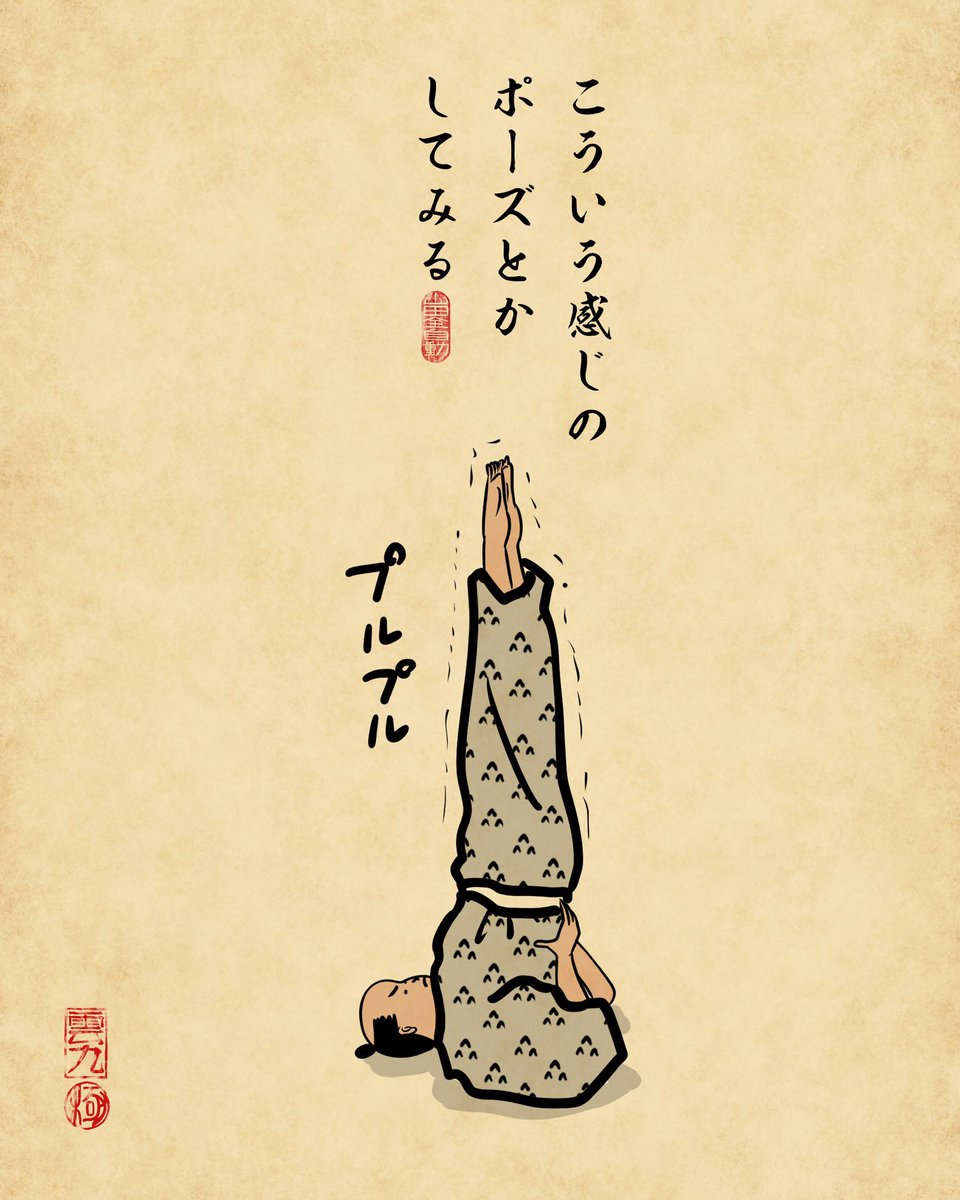 こういう感じの
ポーズとか
してみる
プルプル